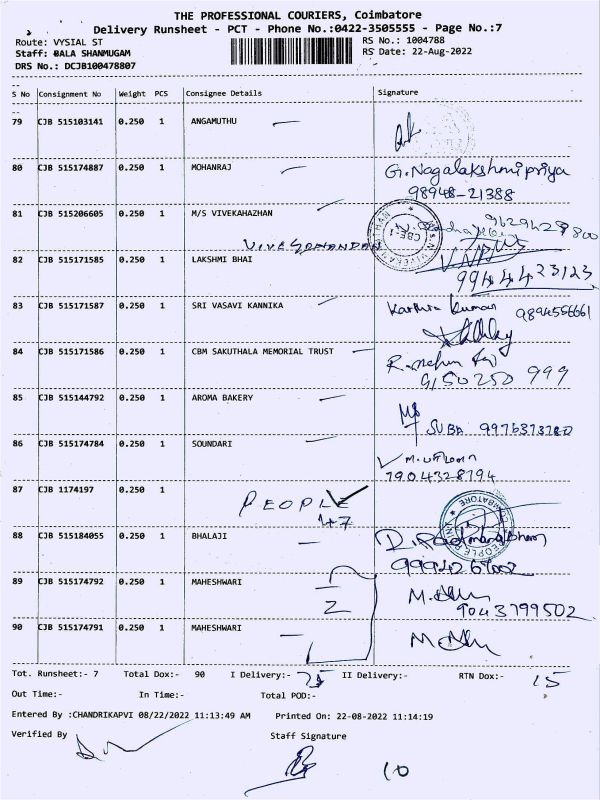 THE PROFESSIONAL COURIERS, Coimbatore
Delivery Runsheet - PCT - Phone No.:0422-3505555 - Page No.:7
Route: VYSIAL ST RS No.: 1004788
Staff: BALA SHANMUGAM RS Date: 22-Aug-2022
DRS No.: DCJB100478807
S No Consignment No Weight PCS Consignee Details Signature
79 CJB 515103141 0.250 1 ANGAMUTHU
80 CJB 515174887 0.250 1 MOHANRAJ G. Nagalakshmipriya
98948-21388
81 CJB 515206605 0.250 1 M/S VIVEKAHAZHAN
VIVEGANANDAN
82 CJB 515171585 0.250 1 LAKSHMI BHAI
9944423123
83 CJB 515171587 0.250 1 SRI VASAVI KANNIKA Karthi Kumar 9894556661
84 CJB 515171586 0.250 1 CBM SAKUTHALA MEMORIAL TRUST
9150250 999
85 CJB 515144792 0.250 1 AROMA BAKERY
SUBA
86 CJB 515174784 0.250 1 SOUNDARI
7904328794
87 CJB 1174197 0.250 1
PEOPLE
47
88 CJB 515184055 0.250 1 BHALAJI
89 CJB 515174792 0.250 1 MAHESHWARI
9043799502
90 CJB 515174791 0.250 1 MAHESHWARI
Tot. Runsheet:- 7 Total Dox:- 90 I Delivery:- II Delivery:- RTN Dox:- 15
Out Time:- In Time:- Total POD:-
Entered By :CHANDRIKAPVI 08/22/2022 11:13:49 AM Printed On: 22-08-2022 11:14:19
Verified By Staff Signature
10